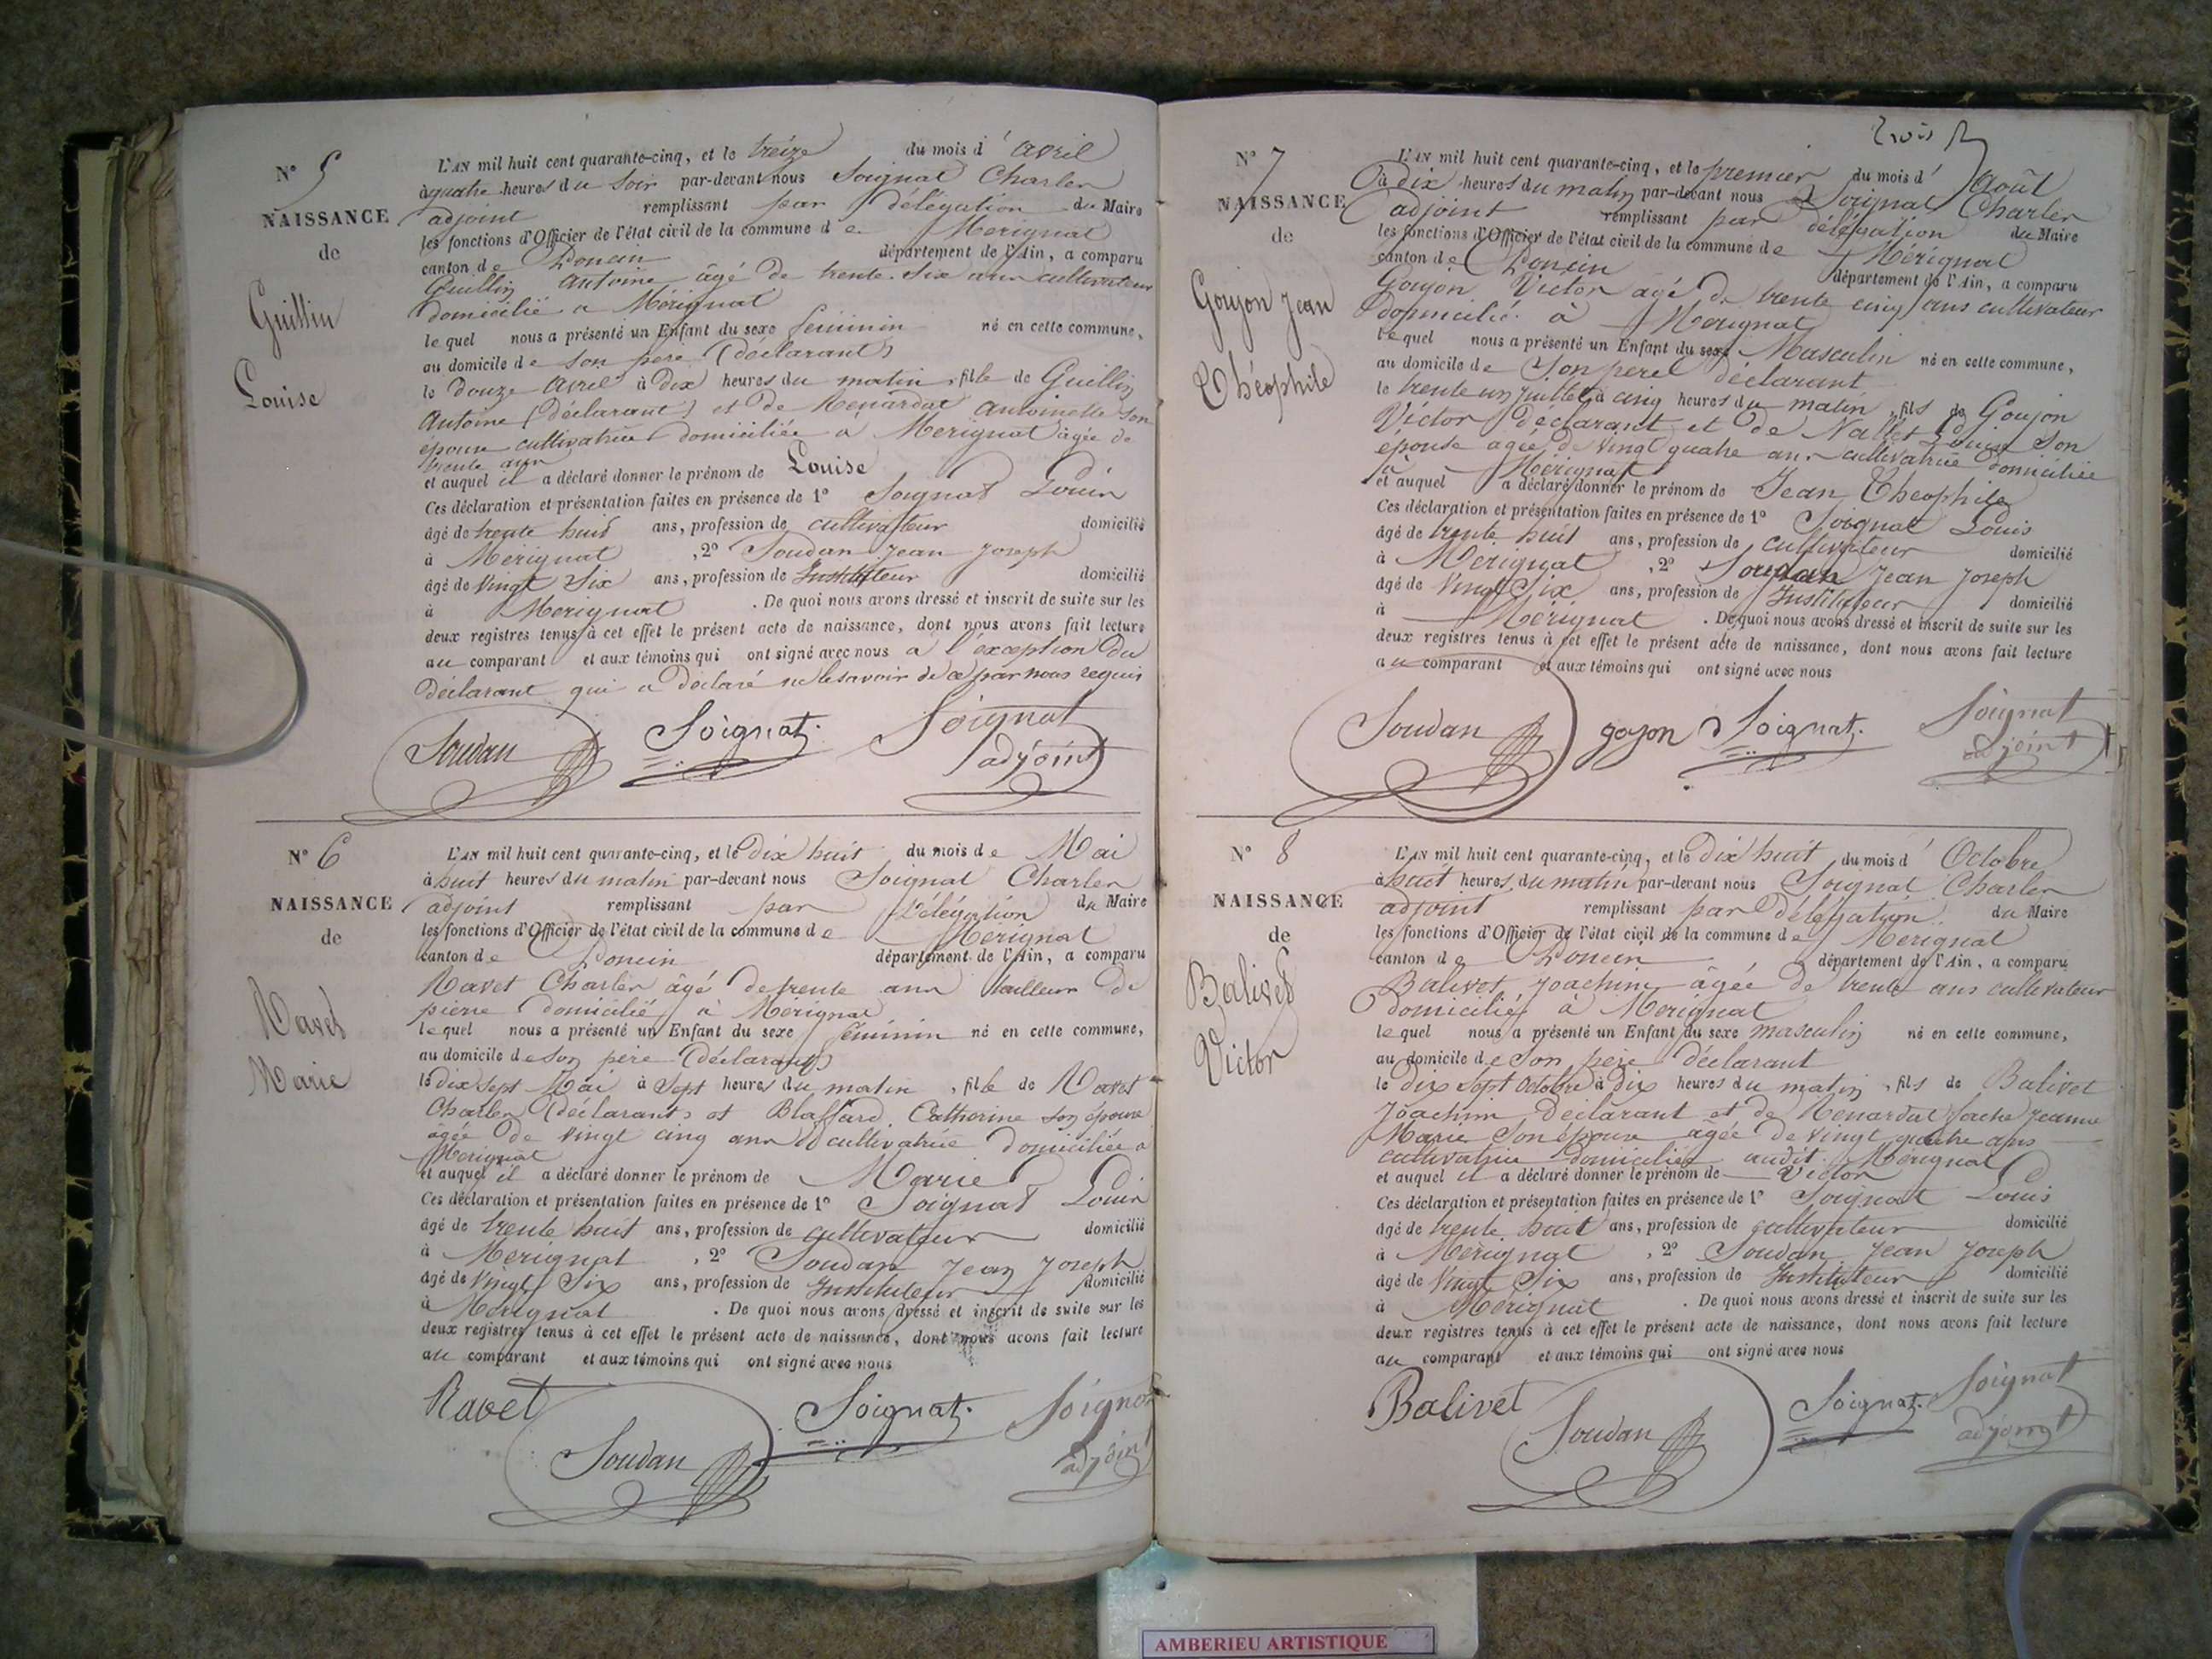 N° 5
NAISSANCE
de
Guillin
Louise
L'AN mil huit cent quarante-cinq, et le treize du mois d' avril
à quatre heures du soir par-devant nous Soignat Charles
adjoint remplissant par délégation du Maire
les fonctions d'Officier de l'état civil de la commune de Merignat
canton de Poncin département de l'Ain, a comparu
Guillin Antoine âgé de trente six ans cultivateur
domicilié a Mérignat
lequel nous a présenté un Enfant du sexe féminin né en cette commune,
au domicile de son pere (déclarant)
le douze avril à dix heures du matin, fille de Guillin
Antoine (déclarant) et de Renardat Antoinette son
épouse cultivatrice domiciliée a Merignat âgée de
trente ans
et auquel il a déclaré donner le prénom de Louise
Ces déclaration et présentation faites en présence de 1° Soignat Louis
âgé de trente huit ans, profession de cultivateur domicilié
à Mérignat, 2° Soudan Jean Joseph
âgé de vingt six ans, profession de Instituteur domicilié
à Merignat. De quoi nous avons dressé et inscrit de suite sur les
deux registres tenus à cet effet le présent acte de naissance, dont nous avons fait lecture
au comparant et aux témoins qui ont signé avec nous a l'exception du
déclarant qui a déclaré ne le savoir de ce par nous requis
Soudan Soignat. Soignat
adjoint
N° 6
NAISSANCE
de
Ravet
Marie
L'AN mil huit cent quarante-cinq, et le dix huit du mois de Mai
à huit heures du matin par-devant nous Soignat Charles
adjoint remplissant par délégation du Maire
les fonctions d'Officier de l'état civil de la commune de Merignat
canton de Poncin département de l'Ain, a comparu
Ravet Charles âgé de trente ans tailleur de
pierre domicilié à Mérignat
lequel nous a présenté un Enfant du sexe féminin né en cette commune,
au domicile de son père (déclarant)
le dix sept Mai à sept heures du matin, fille de Ravet
Charles (déclarant) et Blaffard Catherine son épouse
âgée de vingt cinq ans cultivatrice domiciliée a
Merignat
et auquel il a déclaré donner le prénom de Marie
Ces déclaration et présentation faites en présence de 1° Soignat Louis
âgé de trente huit ans, profession de cultivateur domicilié
à Merignat, 2° Soudan Jean Joseph
âgé de vingt six ans, profession de Instituteur domicilié
à Merignat. De quoi nous avons dressé et inscrit de suite sur les
deux registres tenus à cet effet le présent acte de naissance, dont nous avons fait lecture
au comparant et aux témoins qui ont signé avec nous
Ravet Soignat. Soignat
Soudan adjoint
trois
N° 7
NAISSANCE
de
Goujon Jean
Théophile
L'AN mil huit cent quarante-cinq, et le premier du mois d' Août
à dix heures du matin par-devant nous Soignat Charles
adjoint remplissant par délégation du Maire
les fonctions d'Officier de l'état civil de la commune de Mérignat
canton de Poncin département de l'Ain, a comparu
Goujon Victor agé de trente cinq ans cultivateur
domicilié à Merignat
lequel nous a présenté un Enfant du sexe Masculin né en cette commune,
au domicile de son pere déclarant
le trente un juillet à cinq heures du matin, fils de Goujon
Victor déclarant et de Nallet Louise son
épouse agée de vingt quatre ans cultivatrice domiciliée
à Mérignat
et auquel a déclaré donner le prénom de Jean Theophile
Ces déclaration et présentation faites en présence de 1° Soignat Louis
âgé de trente huit ans, profession de cultivateur domicilié
à Merignat, 2° Soudan Jean Joseph
âgé de vingt six ans, profession de Instituteur domicilié
à Mérignat. De quoi nous avons dressé et inscrit de suite sur les
deux registres tenus à cet effet le présent acte de naissance, dont nous avons fait lecture
au comparant et aux témoins qui ont signé avec nous
Soudan goyon Soignat. Soignat
adjoint
N° 8
NAISSANCE
de
Balivet
Victor
L'AN mil huit cent quarante-cinq, et le dix huit du mois d' Octobre
à huit heures du matin par-devant nous Soignat Charles
adjoint remplissant par délégation du Maire
les fonctions d'Officier de l'état civil de la commune de Merignat
canton de Poncin département de l'Ain, a comparu
Balivet Joachim âgée de trente ans cultivateur
domicilié à Merignat
lequel nous a présenté un Enfant du sexe masculin né en cette commune,
au domicile de son pere déclarant
le dix sept Octobre à dix heures du matin, fils de Balivet
Joachim déclarant et de Renardat Jeanne
Marie son épouse âgée de vingt quatre ans
cultivatrice domiciliée audit Mérignat
et auquel il a déclaré donner le prénom de Victor
Ces déclaration et présentation faites en présence de 1° Soignat Louis
âgé de trente huit ans, profession de cultivateur domicilié
à Merignat, 2° Soudan Jean Joseph
âgé de vingt six ans, profession de Instituteur domicilié
à Mérignat. De quoi nous avons dressé et inscrit de suite sur les
deux registres tenus à cet effet le présent acte de naissance, dont nous avons fait lecture
au comparant et aux témoins qui ont signé avec nous
Balivet Soudan Soignat. Soignat
adjoint
AMBERIEU ARTISTIQUE